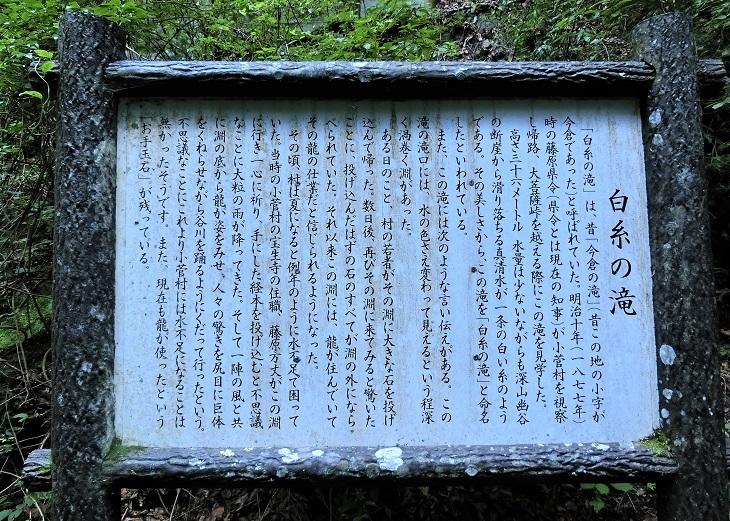 白糸の滝
「白糸の滝」は、昔「今倉の滝」「昔この地の小字が
今倉であった」と呼ばれていた。明治十年(一八七七年)
時の藤原県令(県令とは現在の知事)が小菅村を視察
し帰路、大菩薩峠を越える際にこの滝を見学した。
高さ三十六メートル 水量は少ないながらも深山幽谷
の断崖から滑り落ちる真清水が一条の白い糸のよう
である。その美しさから、この滝を「白糸の滝」と命名
したといわれている。
また、この滝には次のような言い伝えがある。この
滝の滝口には、水の色さえ変わって見えるという程深
く渦巻く淵があった。
ある日のこと、村の若者がその淵に大きな石を投げ
込んで帰った。数日後、再びその淵に来てみると驚いた
ことに、投げ込んだはずの石のすべてが淵の外になら
べられていた。それ以来この淵には、龍が住んでいて
その龍の仕業だと信じられるようになった。
その頃、村は夏になると例年のように水不足で困って
いた。当時の小菅村の宝生寺の住職、藤原方丈がこの淵
に行き一心に祈り、手にした経本を投げ込むと不思議
なことに大粒の雨が降ってきた。そして一陣の風と共
に淵の底から龍が姿をみせ、人々の驚きを尻目に巨体
をくねらせながら谷川を踊るようにくだって行ったという。
不思議なことにこれより小菅村には水不足になることは
無かったそうです。また、現在も龍が使ったという
「お手玉石」が残っている。